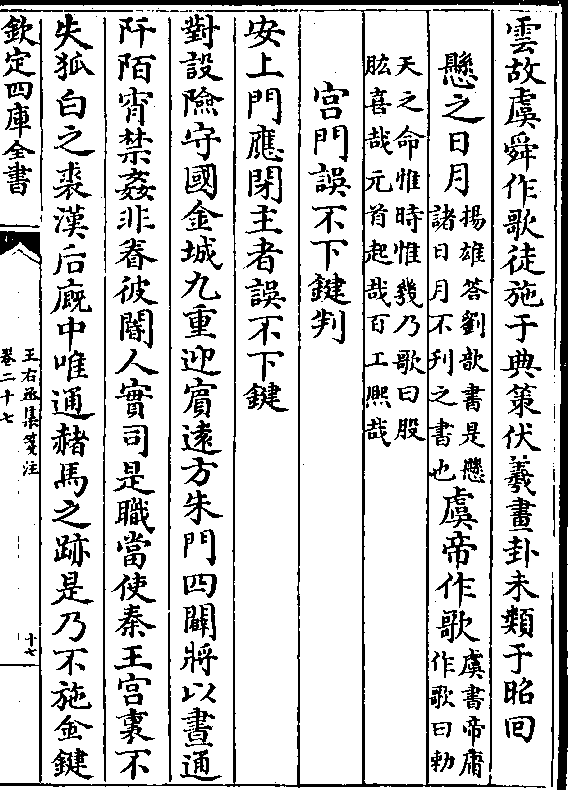 雲故虞舜作歌徒施于典策伏羲畫卦未類于昭回
懸之日月
揚雄答劉歆書是懸
諸日月不刋之書也
虞帝作歌
虞書帝庸
作歌曰勅
天之命惟時惟幾乃歌曰股
肱喜哉元首起哉百工熙哉
宮門誤不下鍵判
安上門應閉主者誤不下鍵
對設險守國金城九重迎賓遠方朱門四闢將以晝通
阡陌宵禁姦非眷彼閽人實司是職當使秦王宮裏不
失狐白之裘漢后廐中唯通赭馬之跡是乃不施金鍵
欽定四庫全書
王右丞集箋注
卷二十七
十七